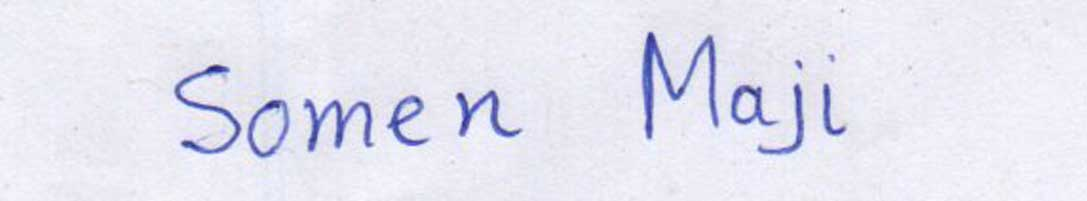 Somen Maji